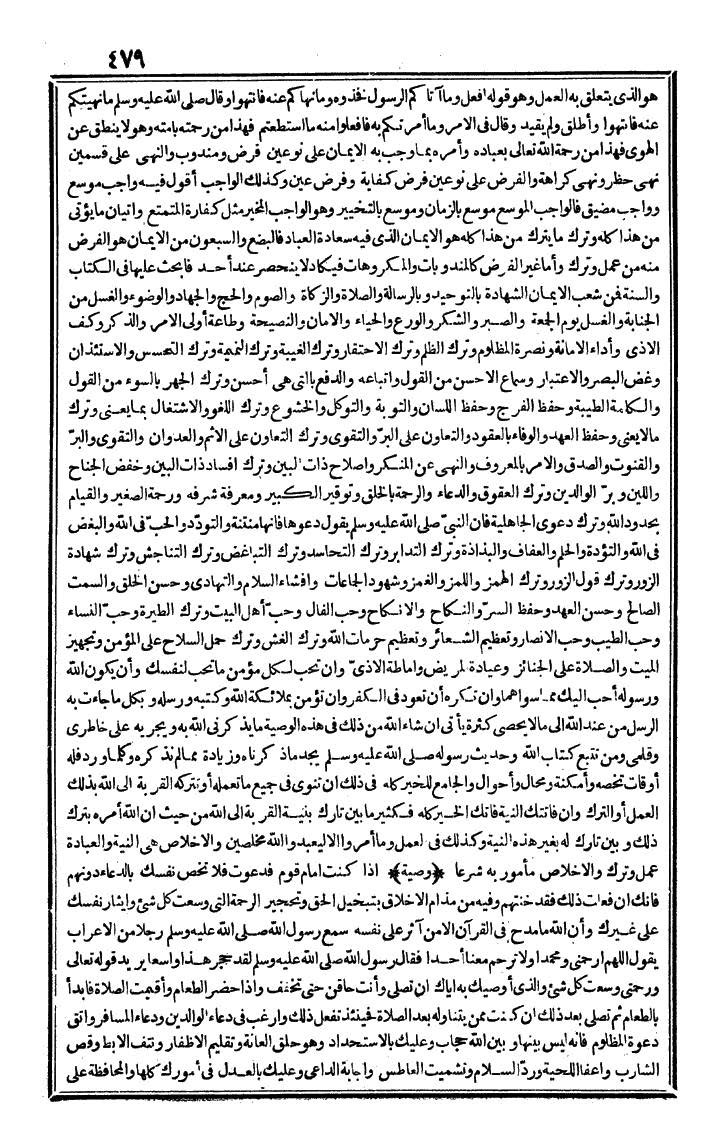 ٤٧٩
هو الذى يتعلق به العمل وهو قوله افعل وما آتاكم الرسول نفذوه وما نهاكم عنه فانتهوا وقال صلى الله عليه وسلم ما نهيتكم
عنه فانتهوا وأطلق ولم يقيد وقال فى الامر وما أمرتكم به فافعلوا منه ما استطعتم فهذا من رحمته بامته وهو لا ينطق عن
الهوى فهذا من رحمة الله تعالى بعباده وأمره بما وجب به الايمان على نوعين فرض ومندوب والنهى على قسمين
نهى حظر ونهى كراهة والفرض على نوعين فرض كفاية وفرض عين وكذلك الواجب أقول فيه واجب موسع
وواجب مضيق فالواجب الموسع موسع بالزمان وموسع بالتخيير وهو الواجب المخير مثل كفارة المتمتع واتيان ما يؤتى
من هذا كله وترك ما يترك من هذا كله هو الايمان الذى فيه سعادة العباد فالبضع والسبعون من الايمان هو الفرض
منه من عمل وترك وأما غير الفرض كالمندوبات والمكروهات فيكاد لا ينحصر عند أحد فابحث عليها فى الكتاب
والسنة فمن شعب الايمان الشهادة بالتوحيد وبالرسالة والصلاة والزكاة والصوم والحج والجهاد والوضوء والغسل من
الجنابة والغسل يوم الجمعة والصبر والشكر والورع والحياء والامان والنصيحة وطاعة أولى الامر والذكر وكف
الاذى وأداء الامانة ونصرة المظلوم وترك الظلم وترك الاحتقار وترك الغيبة وترك النميمة وترك التجسس والاستئذان
وغض البصر والاعتبار وسماع الاحسن من القول واتباعه والدفع بالتى هى أحسن وترك الجهر بالسوء من القول
والكلمة الطيبة وحفظ الفرج وحفظ اللسان والتوبة والتوكل والخشوع وترك اللغو والاشتغال بما يعنى وترك
ما لا يعنى وحفظ العهد والوفاء بالعقود والتعاون على البر والتقوى وترك التعاون على الاثم والعدوان والتقوى والبر
والقنوت والصدق والامر بالمعروف والنهى عن المنكر واصلاح ذات البين وترك افساد ذات البين وخفض الجناح
واللين وبر الوالدين وترك العقوق والدعاء والرحمة بالخلق وتوقير الكبير ومعرفة شرفه ورحمة الصغير والقيام
بحدود الله وترك دعوى الجاهلية فان النبى صلى الله عليه وسلم يقول دعوها فانها منتنة والتودد والحب فى الله والبغض
فى الله والتؤدة والحلم والعفاف والبذاذة وترك التدابر وترك التحاسد وترك التباغض وترك التناجش وترك شهادة
الزور وترك قول الزور وترك الهمز واللمز والغمز وشهود الجماعات وافشاء السلام والتهادى وحسن الخلق والسمت
الصالح وحسن العهد وحفظ السر والنكاح والانكاح وحب الفال وحب أهل البيت وترك الطيرة وحب النساء
وحب الطيب وحب الانصار وتعظيم الشعائر وتعظيم حرمات الله وترك الغش وترك حمل السلاح على المؤمن وتجهيز
الميت والصلاة على الجنائز وعيادة المريض واماطة الاذى وان تحب لكل مؤمن ما تحب لنفسك وأن يكون الله
ورسوله أحب اليك مما سواهما وان تكره أن تعود فى الكفر وان تؤمن بملائكة الله وكتبه ورسله وبكل ما جاءت به
الرسل من عند الله الى ما لا يحصى كثرة يأتى ان شاء الله من ذلك فى هذه الوصية ما يذكرنى الله به ويجريه على خاطرى
وقلمى ومن تتبع كتاب الله وحديث رسوله صلى الله عليه وسلم يجد ما ذكرناه وزيادة مما لم نذكره وكلما ورد فله
أوقات تخصه وأمكنة ومحال وأحوال والجامع للخير كله فى ذلك ان تنوى فى جميع ما تعمله أو تتركه القربة الى الله بذلك
العمل أو الترك وان فاتتك النية فاتك الخير كله فكثير ما بين تارك بنية القربة الى الله من حيث ان الله أمره بترك
ذلك وبين تارك له بغير هذه النية وكذلك فى العمل وما أمروا الا ليعبدوا الله مخلصين والاخلاص هى النية والعبادة
عمل وترك والاخلاص مأمور به شرعا ﴿وصية﴾ اذا كنت امام قوم فدعوت فلا تخص نفسك بالدعاء دونهم
فانك ان فعلت ذلك فقد خنتهم وفيه من مذام الاخلاق بتبخيل الحق وتحجير الرحمة التى وسعت كل شئ وايثار نفسك
على غيرك وأن الله ما مدح فى القرآن الا من آثر على نفسه سمع رسول الله صلى الله عليه وسلم رجلا من الاعراب
يقول اللهم ارحمنى ومحمدا ولا ترحم معنا أحدا فقال رسول الله صلى الله عليه وسلم لقد حجر هذا واسعا يريد قوله تعالى
ورحمتى وسعت كل شئ والذى أوصيك به اياك ان تصلى وأنت حاقن حتى تخفف واذا حضر الطعام وأقيمت الصلاة فابدأ
بالطعام ثم تصلى بعد ذلك ان كنت ممن يتناوله بعد الصلاة فحينئذ تفعل ذلك وارغب فى دعاء الوالدين ودعاء المسافر واتق
دعوة المظلوم فانه ليس بينها وبين الله حجاب وعليك بالاستحداد وهو حلق العانة وتقليم الاظفار ونتف الابط وقص
الشارب واعفا اللحية ورد السلام وتشميت العاطس واجابة الداعى وعليك بالعدل فى أمورك كلها والمحافظة على